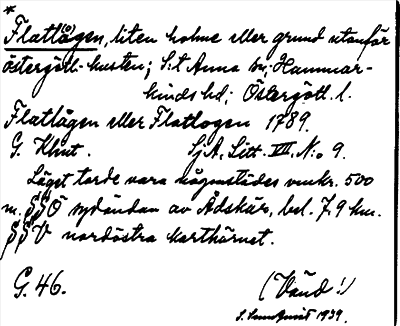 *
Flatlågen, liten holme eller grund utanför
östergötl. kusten; S:t Anna sn; Hammar-
kinds hd; Östergötl. l.
Flatlågen eller Flatlogen 1789.
G. Khrt. SjA, Litt. VII. N:o 9.
Läget torde vara någonstädes omkr. 500
m. SSÖ sydändan av Ådskär, bel. 7,9 km.
SSV nordöstra karthörnet.
G. 46. (Vänd!)
1939.